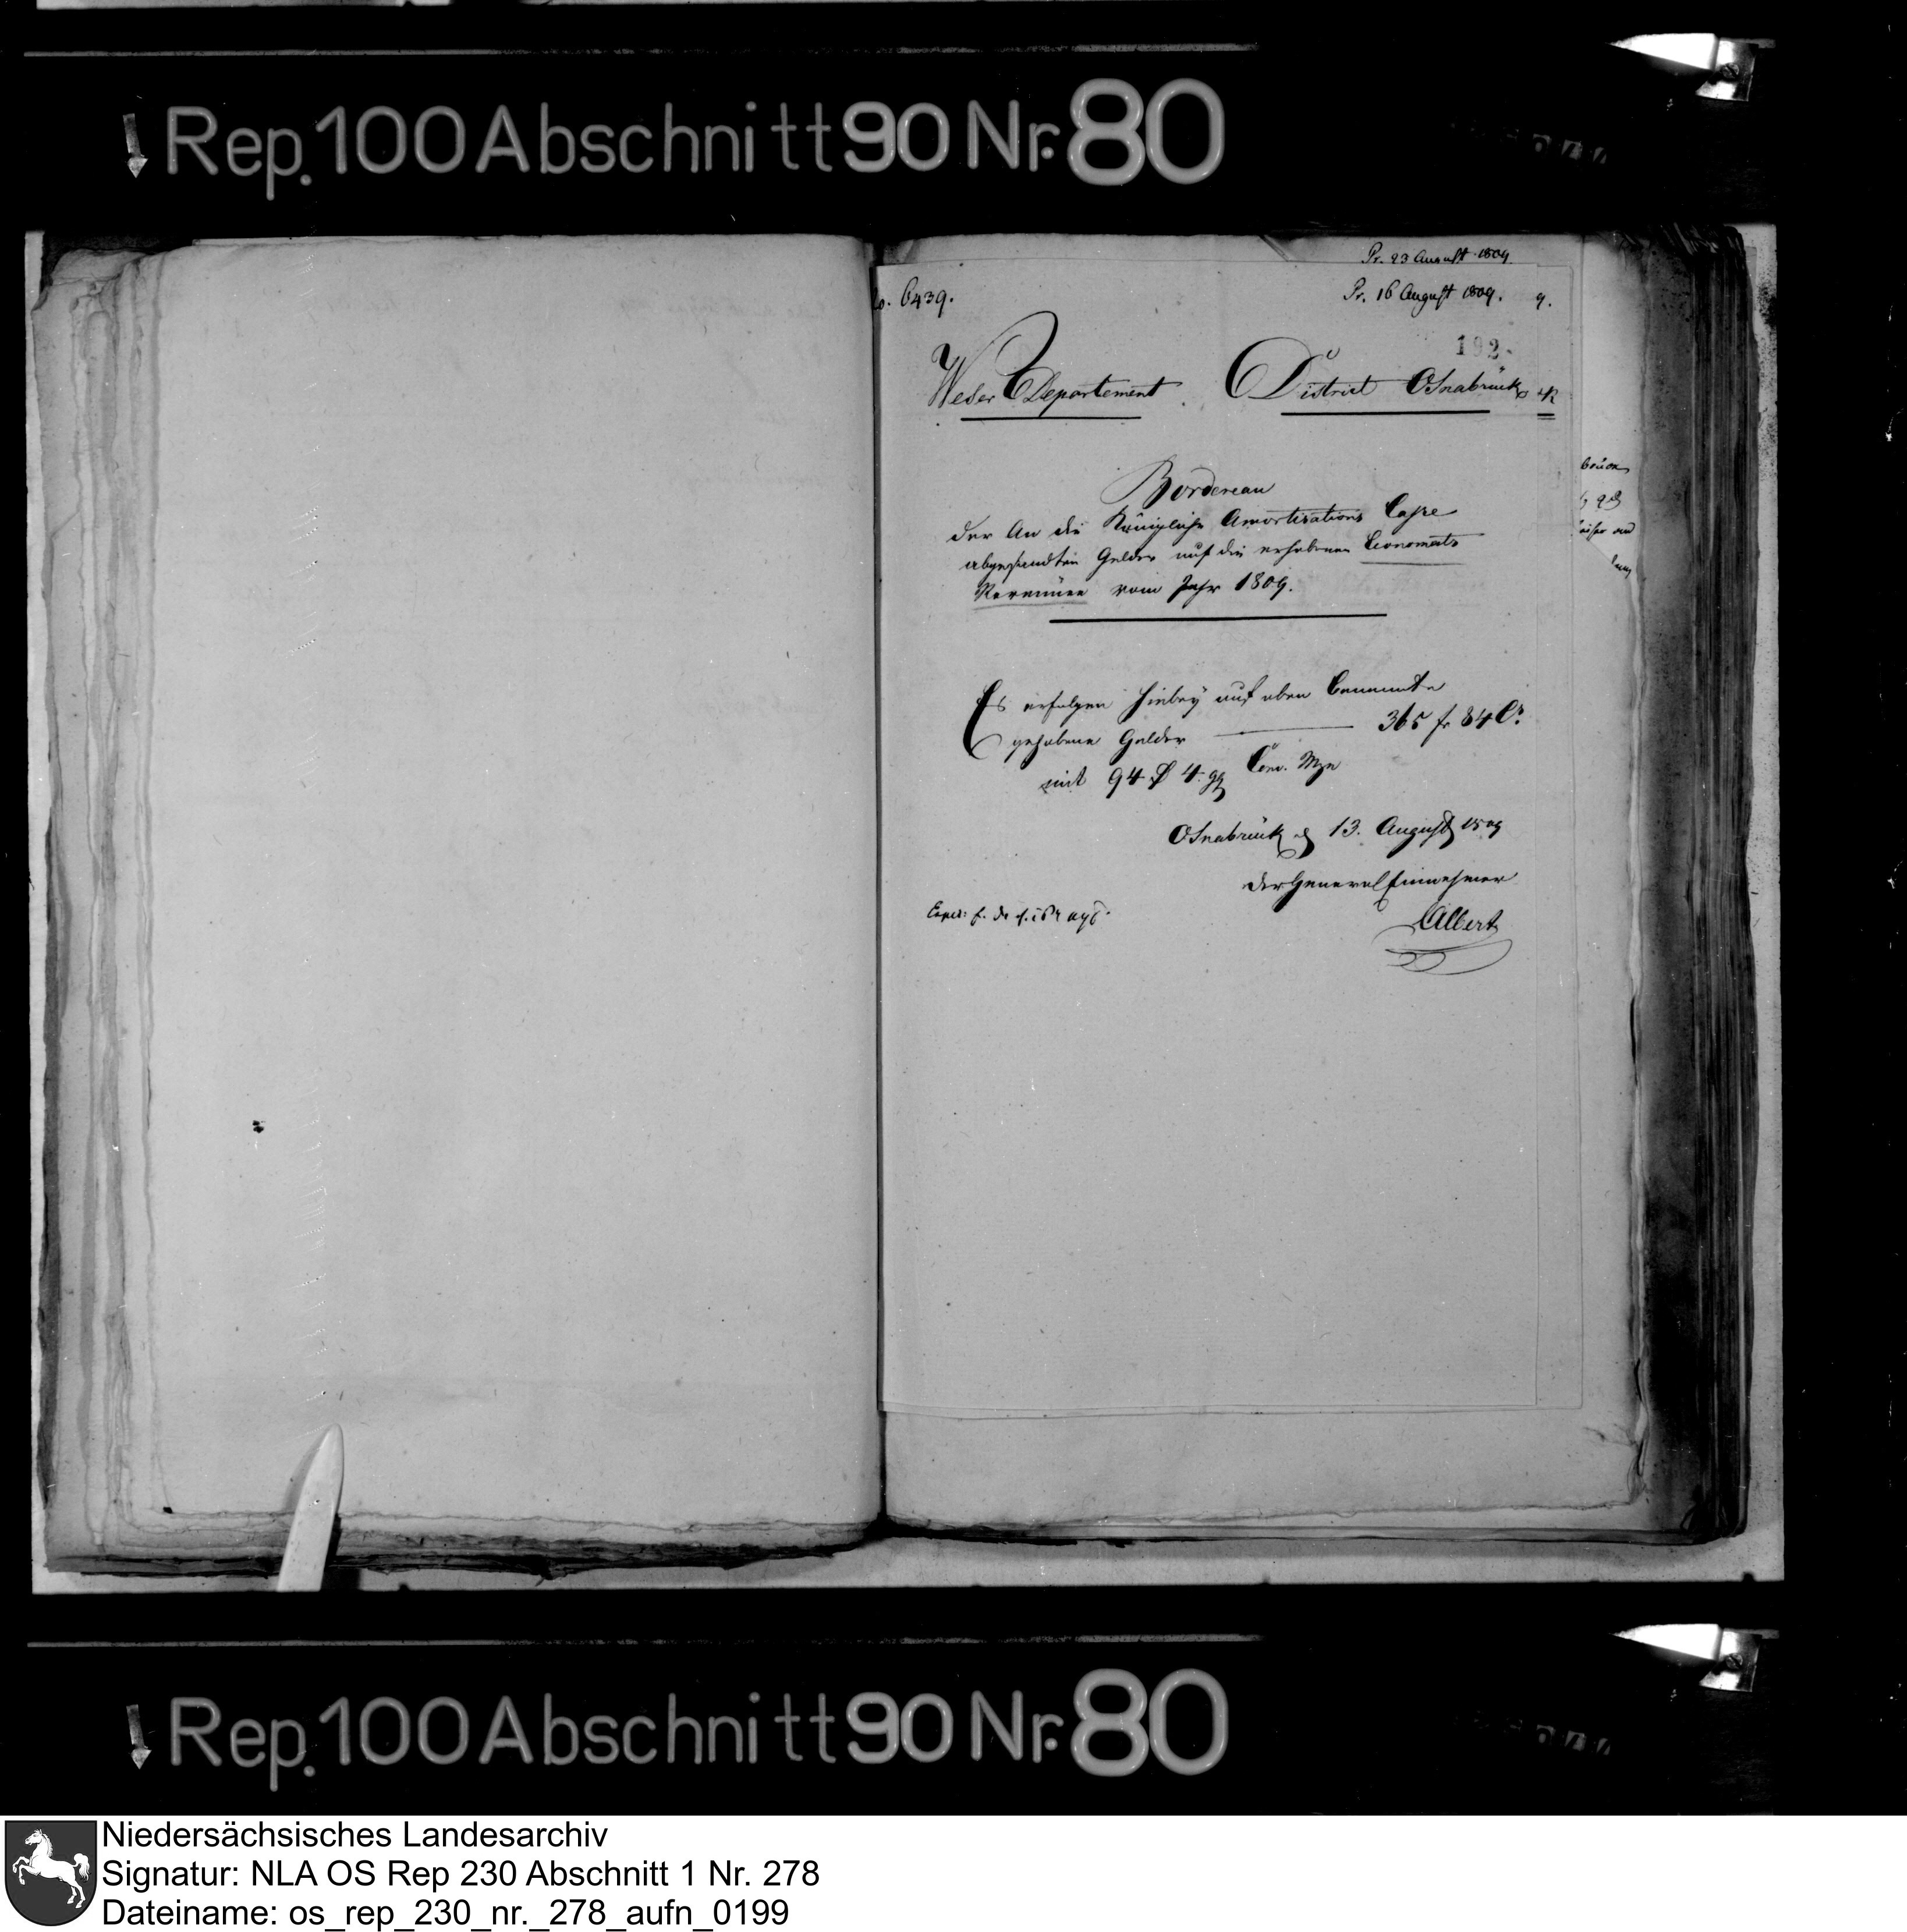 Rep. 100 Abschnitt 90 Nr. 80
Pr. 23 August 1809.
No. 6439.
Pr. 16 August 1809. 9.
192.
Weser Departement. District Osnabrück
Bordereau
der An die Königliche Amortisations Casse
abgesandten Gelder auf die erhobenen Economats
Revenüen vom Jahr 1809.
Es erfolgen hiebey auf oben benannte
gehobene Gelder 365 fr 84 Cs
mit 94 ₰ 4 gg Conv. Mze
Osnabrück d 13. August 1809
der General Einnehmer
Albert
Rep. 100 Abschnitt 90 Nr. 80
Niedersächsisches Landesarchiv
Signatur: NLA OS Rep 230 Abschnitt 1 Nr. 278
Dateiname: os_rep_230_nr._278_aufn_0199